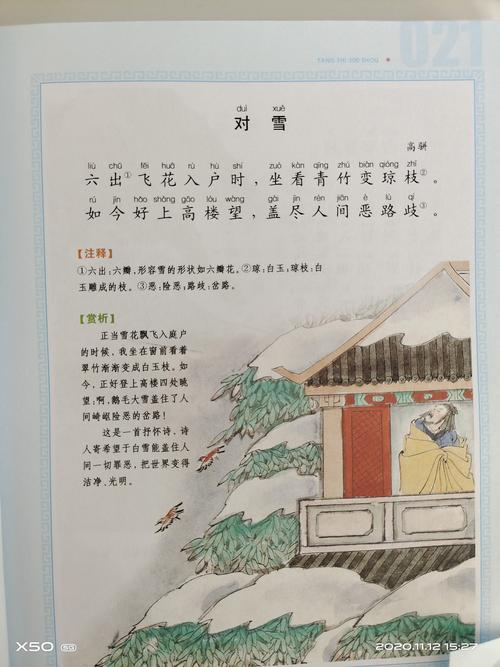 TANG SHI 300 SHOU
021
duì xuě
对 雪
高骈
liù chū fēi huā rù hù shí zuò kàn qīng zhú biàn qióng zhī
六出①飞花入户时，坐看青竹变琼枝②。
rú jīn hǎo shàng gāo lóu wàng gài jìn rén jiān è lù qí
如今好上高楼望，盖尽人间恶路歧③。
【注释】
①六出：六瓣，形容雪的形状如六瓣花。②琼：白玉；琼枝：白
玉雕成的枝。③恶：险恶；路歧：岔路。
【赏析】
正当雪花飘飞入庭户
的时候，我坐在窗前看着
翠竹渐渐变成白玉枝。如
今，正好登上高楼四处眺
望：啊，鹅毛大雪盖住了人
间崎岖险恶的岔路！
这是一首抒怀诗，诗
人寄希望于白雪能盖住人
间一切罪恶，把世界变得
洁净、光明。
X50 5G
2020.11.12 15:27